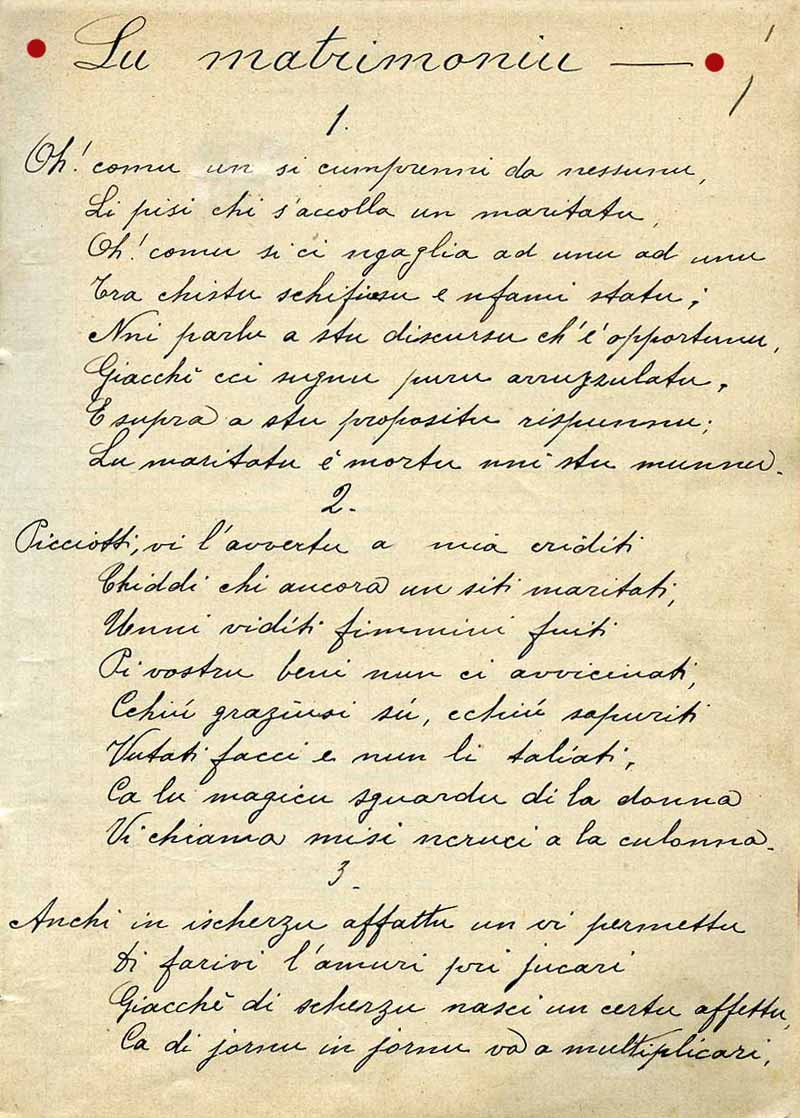 Lu matrimoniu —
1
1.
Oh! comu un si cumprenni da nessunu,
Li pisi chi s'accolla un maritatu,
Oh! comu si ci ngaglia ad unu ad unu
Tra chistu schifiusu e nfami statu;
Nni parlu a stu discursu ch'è opportunu,
Giacchè cci sugnu puru arruzzulatu,
E supra a stu propositu rispunnu;
Lu maritatu è mortu nni stu munnu.
2.
Picciotti, vi l'avvertu a mia criditi
Chiddi chi ancora un siti maritati,
Unni viditi fimmini fuiti
Pi vostru beni nun ci avvicinati,
Cchiú graziusi sú, cchiú sapuriti
Vutati facci e nun li taliati,
Ca lu magicu sguardu di la donna
Vi chiama misi ncruci a la culonna.
3.
Anchi in ischerzu affattu un vi permettu
Di farivi l'amuri pri jucari
Giacchè di scherzu nasci un certu affettu,
Ca di jornu in jornu va a multiplicari,